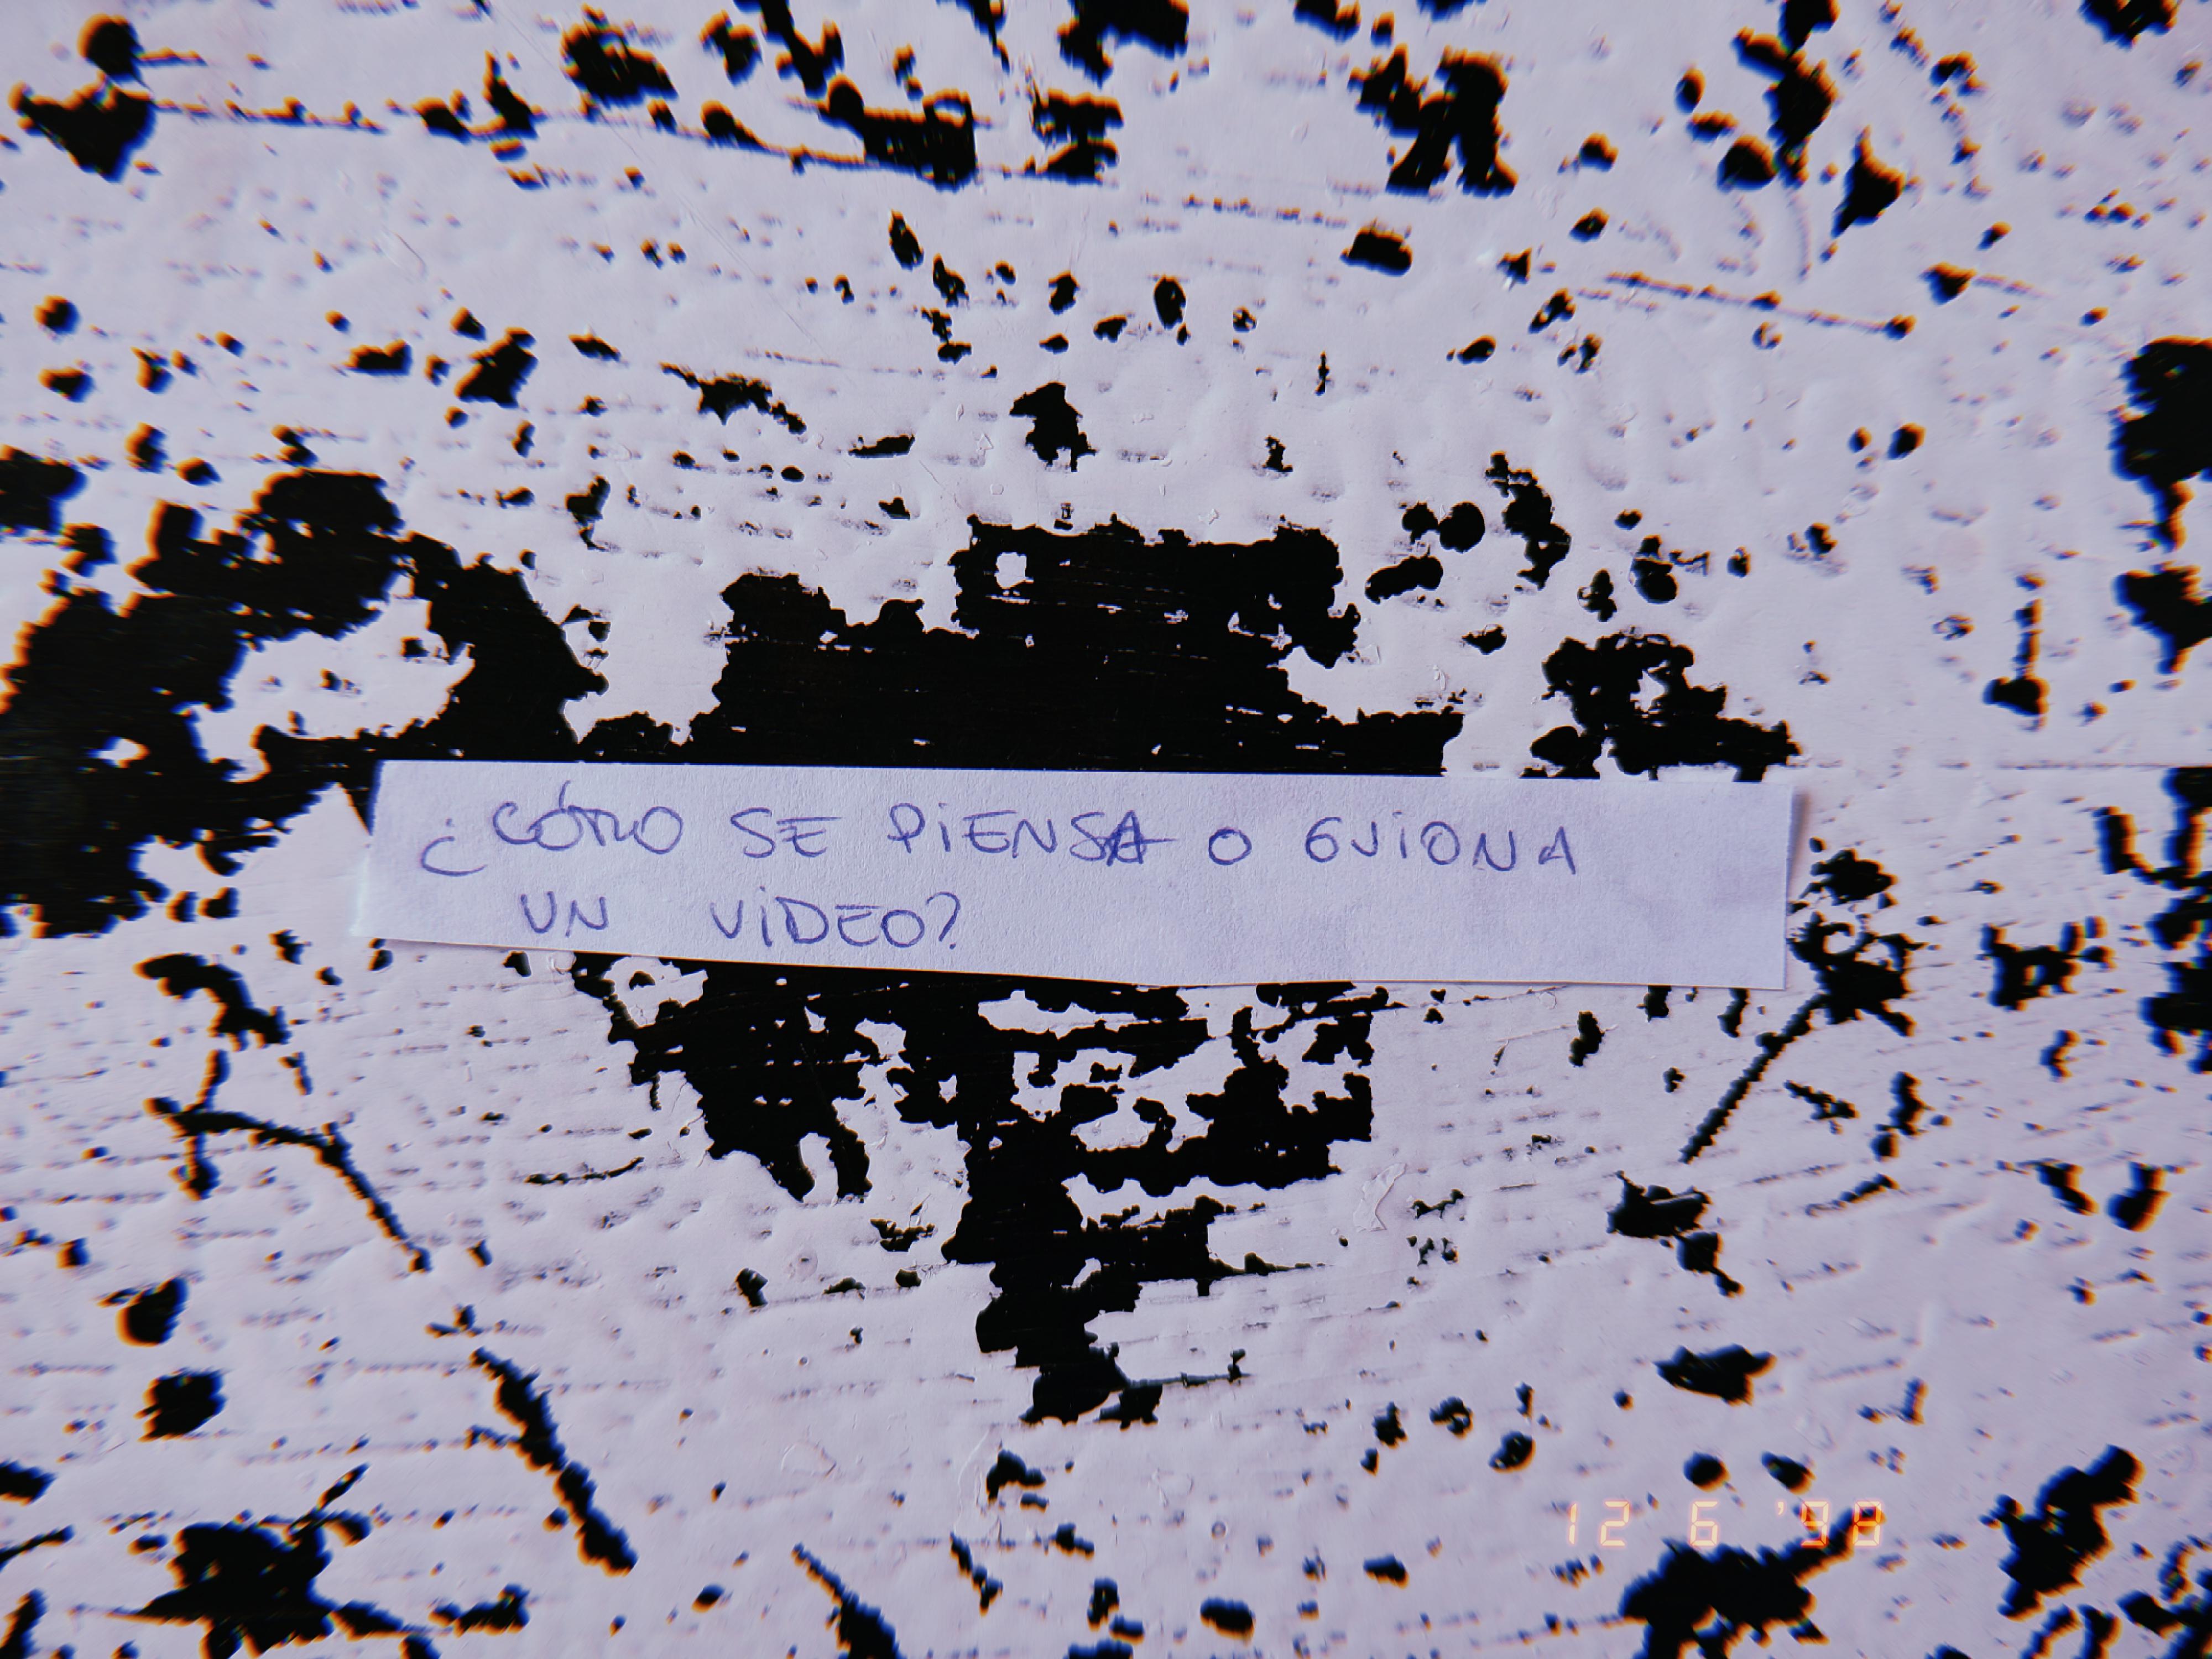 ¿CÓMO SE PIENSA O GUIONA
UN VIDEO?
12 6 '98